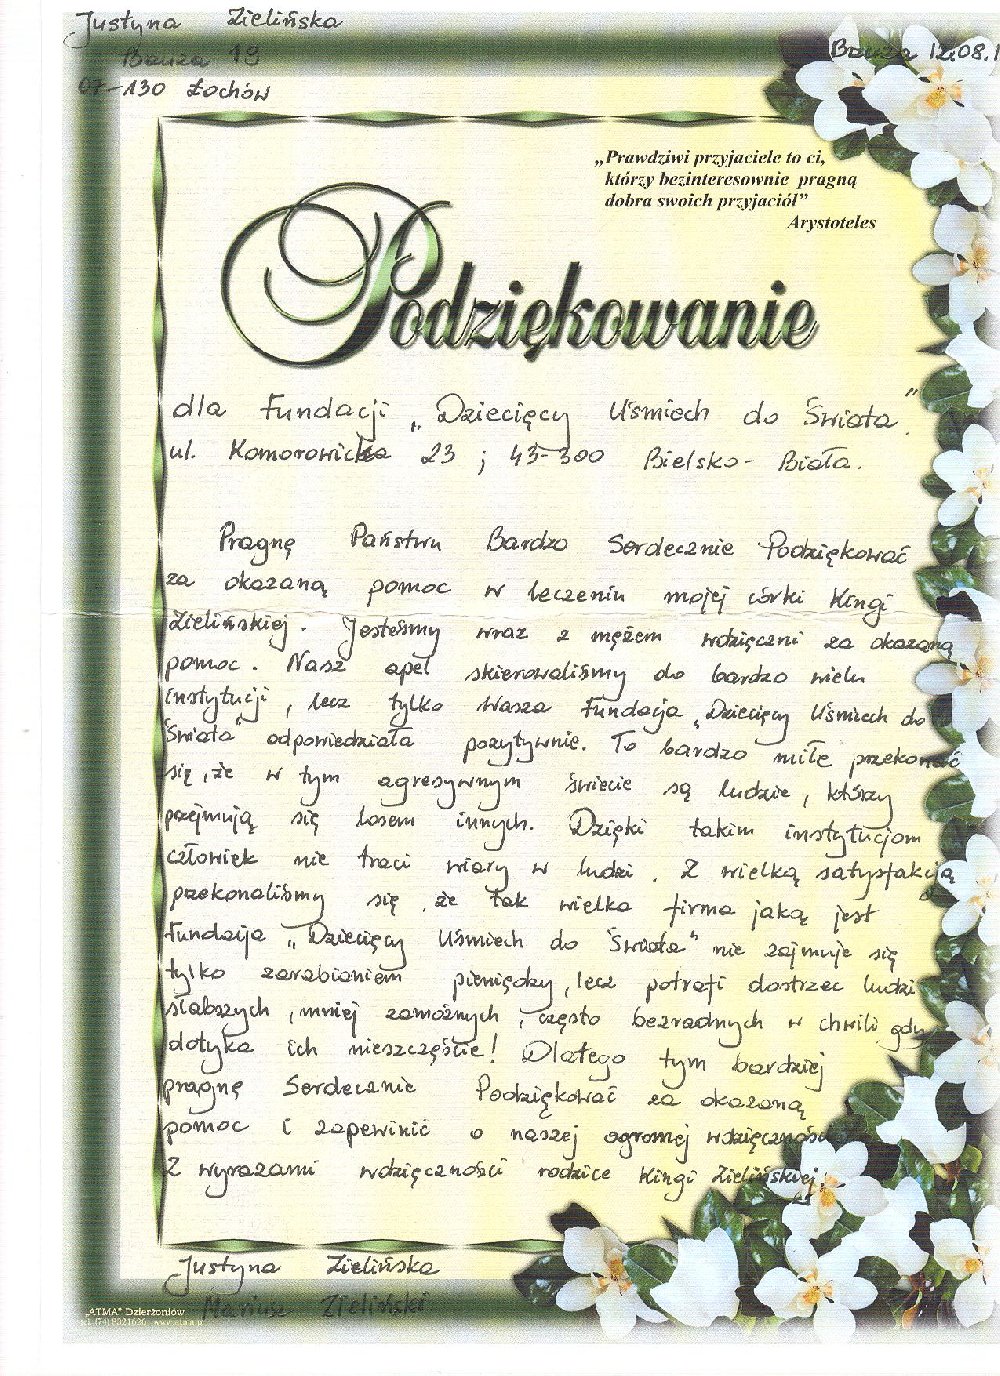 Justyna Zielińska
Bzuza 19
07-130 Łochów
Bzuza 12.08.1
„Prawdziwi przyjaciele to ci,
którzy bezinteresownie pragną
dobra swoich przyjaciół”
Arystoteles
Podziękowanie
dla Fundacji „Dziecięcy Uśmiech do Świata”
ul. Komorowicka 23 ; 43-300 Bielsko-Biała.
Pragnę Państwu Bardzo Serdecznie Podziękować
za okazaną pomoc w leczeniu mojej córki Kingi
Zielińskiej. Jesteśmy wraz z mężem wdzięczni za okazaną
pomoc. Nasz apel skierowaliśmy do bardzo wielu
instytucji, lecz tylko Wasza Fundacja „Dziecięcy Uśmiech do
Świata” odpowiedziała pozytywnie. To bardzo miłe przekonać
się, że w tym agresywnym świecie są ludzie, którzy
przejmują się losem innych. Dzięki takim instytucjom
człowiek nie traci wiary w ludzi. Z wielką satysfakcją
przekonaliśmy się, że tak wielka firma jaką jest
Fundacja „Dziecięcy Uśmiech do Świata” nie zajmuje się
tylko zarabianiem pieniędzy, lecz potrafi dostrzec ludzi
słabszych, mniej zamożnych, często bezradnych w chwili gdy
dotyka ich nieszczęście! Dlatego tym bardziej
pragnę Serdecznie Podziękować za okazaną
pomoc i zapewnić o naszej ogromej wdzięczności.
Z wyrazami wdzięczności rodzice Kingi Zielińskiej.
Justyna Zielińska
Mariusz Zieliński
„ATMA” Dzierżoniów